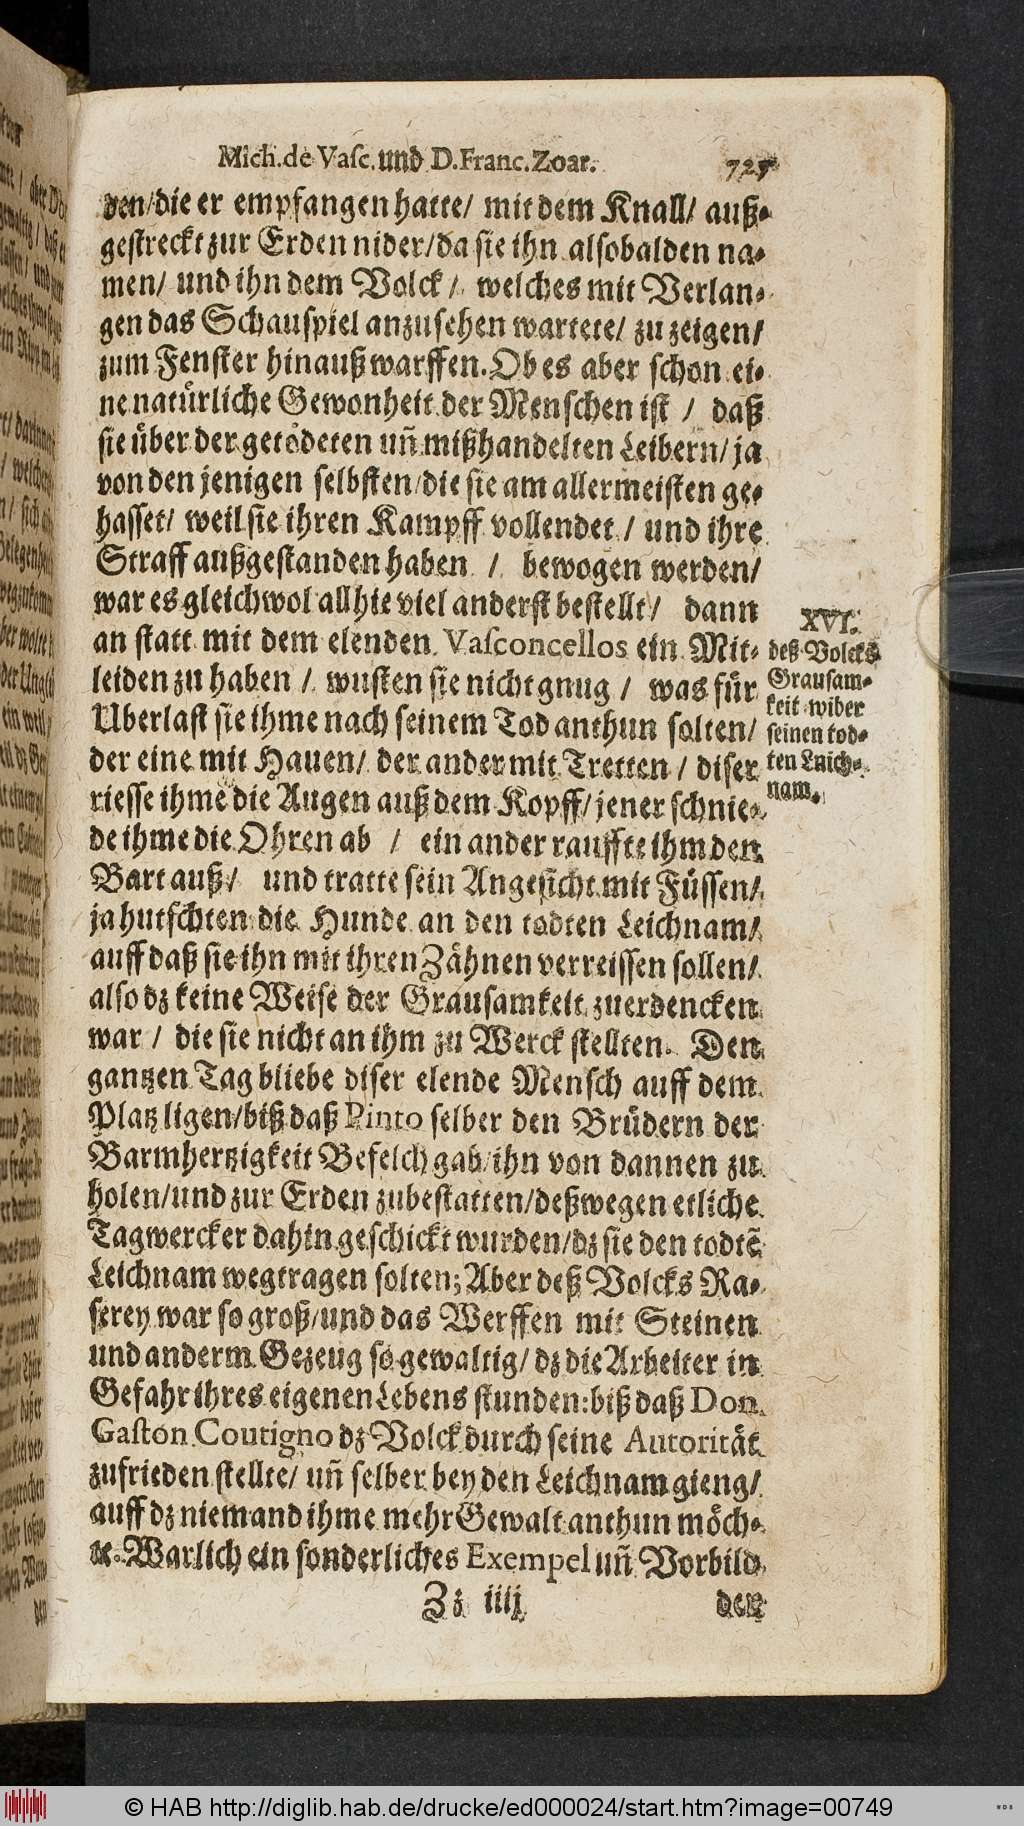 Mich. de Vaſc. und D. Franc. Zoar. 727
den/ die er empfangen hatte/ mit dem Knall/ auß-
geſtreckt zur Erden nider/ da ſie ihn alſobalden na-
men/ und ihn dem Volck/ welches mit Verlan-
gen das Schauſpiel anzuſehen wartete/ zu zeigen/
zum Fenſter hinauß warffen. Ob es aber ſchon ei-
ne natürliche Gewonheit der Menſchen iſt / daß
ſie über der getödeten uñ mißhandelten Leibern/ ja
von den jenigen ſelbſten/ die ſie am allermeiſten ge-
haſſet/ weil ſie ihren Kampff vollendet / und ihre
Straff außgeſtanden haben / bewogen werden/
war es gleichwol allhie viel anderſt beſtellt/ dann
an ſtatt mit dem elenden Vaſconcellos ein Mit-
leiden zu haben / wuſten ſie nicht gnug / was für
Uberlaſt ſie ihme nach ſeinem Tod anthun ſolten/
der eine mit Hauen/ der ander mit Tretten / diſer
rieſſe ihme die Augen auß dem Kopff/ jener ſchnie-
de ihme die Ohren ab / ein ander rauffte ihm den
Bart auß/ und tratte ſein Angeſicht mit Füſſen/
ja hutſchten die Hunde an den todten Leichnam/
auff daß ſie ihn mit ihren Zähnen verreiſſen ſollen/
alſo dz keine Weiſe der Grauſamkeit zuerdencken
war / die ſie nicht an ihm zu Werck ſtellten. Den
gantzen Tag bliebe diſer elende Menſch auff dem
Platz ligen/ biß daß Pinto ſelber den Brüdern der
Barmhertzigkeit Befelch gab/ ihn von dannen zu
holen/ und zur Erden zubeſtatten/ deßwegen etliche
Tagwercker dahin geſchickt wurden/ dz ſie den todtẽ
Leichnam wegtragen ſolten; Aber deß Volcks Ra-
ſerey war ſo groß/ und das Werffen mit Steinen
und anderm Gezeug ſo gewaltig/ dz die Arbeiter in
Gefahr ihres eigenen Lebens ſtunden: biß daß Don
Gaſton Coutigno dz Volck durch ſeine Autorität
zufrieden ſtellte/ uñ ſelber bey den Leichnam gieng/
auff dz niemand ihme mehr Gewalt anthun möch-
te. Warlich ein ſonderliches Exempel uñ Vorbild
Zz iiij den
XVI.
deß Volcks
Grauſam-
keit wider
ſeinen tod-
ten Laich-
nam.
© HAB http://diglib.hab.de/drucke/ed000024/start.htm?image=00749